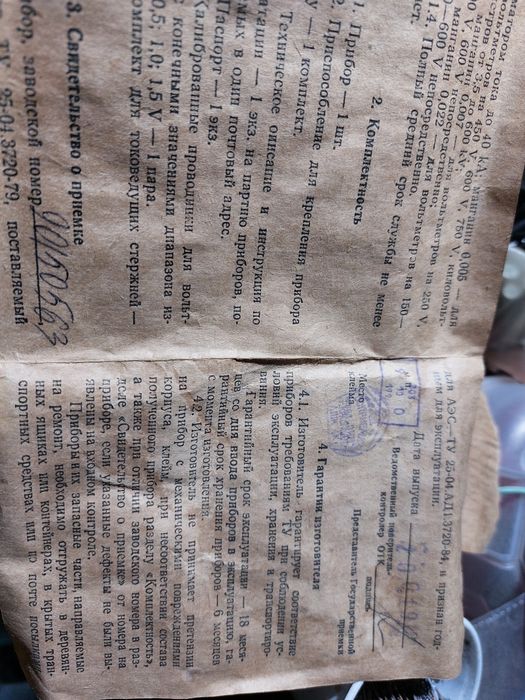 матом тока до 40 kA, манганин 0,005 — для
манганин 0,007 — для вольтметров на 250 V,
V 600 V непосредственно;
— манганин 0,022 — для вольтметров на 150 —
— 600 V непосредственно.
1.4. Полный средний срок службы не менее
лет.
2. Комплектность
1. Прибор — 1 шт.
2. Приспособление для крепления прибора
у — 1 комплект.
Техническое описание и инструкция по
атации — 1 экз. на партию приборов, по-
мых в один почтовый адрес.
Паспорт — 1 экз.
Калиброванные проводники для вольт-
с конечными значениями диапазона из-
0,5; 1,0; 1,5 V — 1 пара.
омплект для токоведущих стержней —
3. Свидетельство о приемке
бор, заводской номер 90150563
ТУ 25-04.3720-79, поставляемый
для АЭС—ТУ 25-04.АД1.3720-84, и признан год-
ным для эксплуатации.
Дата выпуска
Ведомственный поверитель-
контролер ОТК
подпись
Место
клейма
Представитель Государственной
приемки
4. Гарантии изготовителя
4.1. Изготовитель гарантирует соответствие
приборов требованиям ТУ при соблюдении ус-
ловий эксплуатации, хранения и транспортиро-
вания.
Гарантийный срок эксплуатации — 18 меся-
цев со дня ввода приборов в эксплуатацию, га-
рантийный срок хранения приборов — 6 месяцев
с момента изготовления.
4.2. Изготовитель не принимает претензии
на прибор с механическими повреждениями
корпуса, клейм, при несоответствии состава
полученного прибора разделу «Комплектность»,
а также при отличии заводского номера в раз-
деле «Свидетельство о приемке» от номера на
приборе, если указанные дефекты не были вы-
явлены на входном контроле.
Приборы и их запасные части, направляемые
на ремонт, необходимо отгружать в деревян-
ных ящиках или контейнерах, в крытых тран-
спортных средствах или по почте посылками